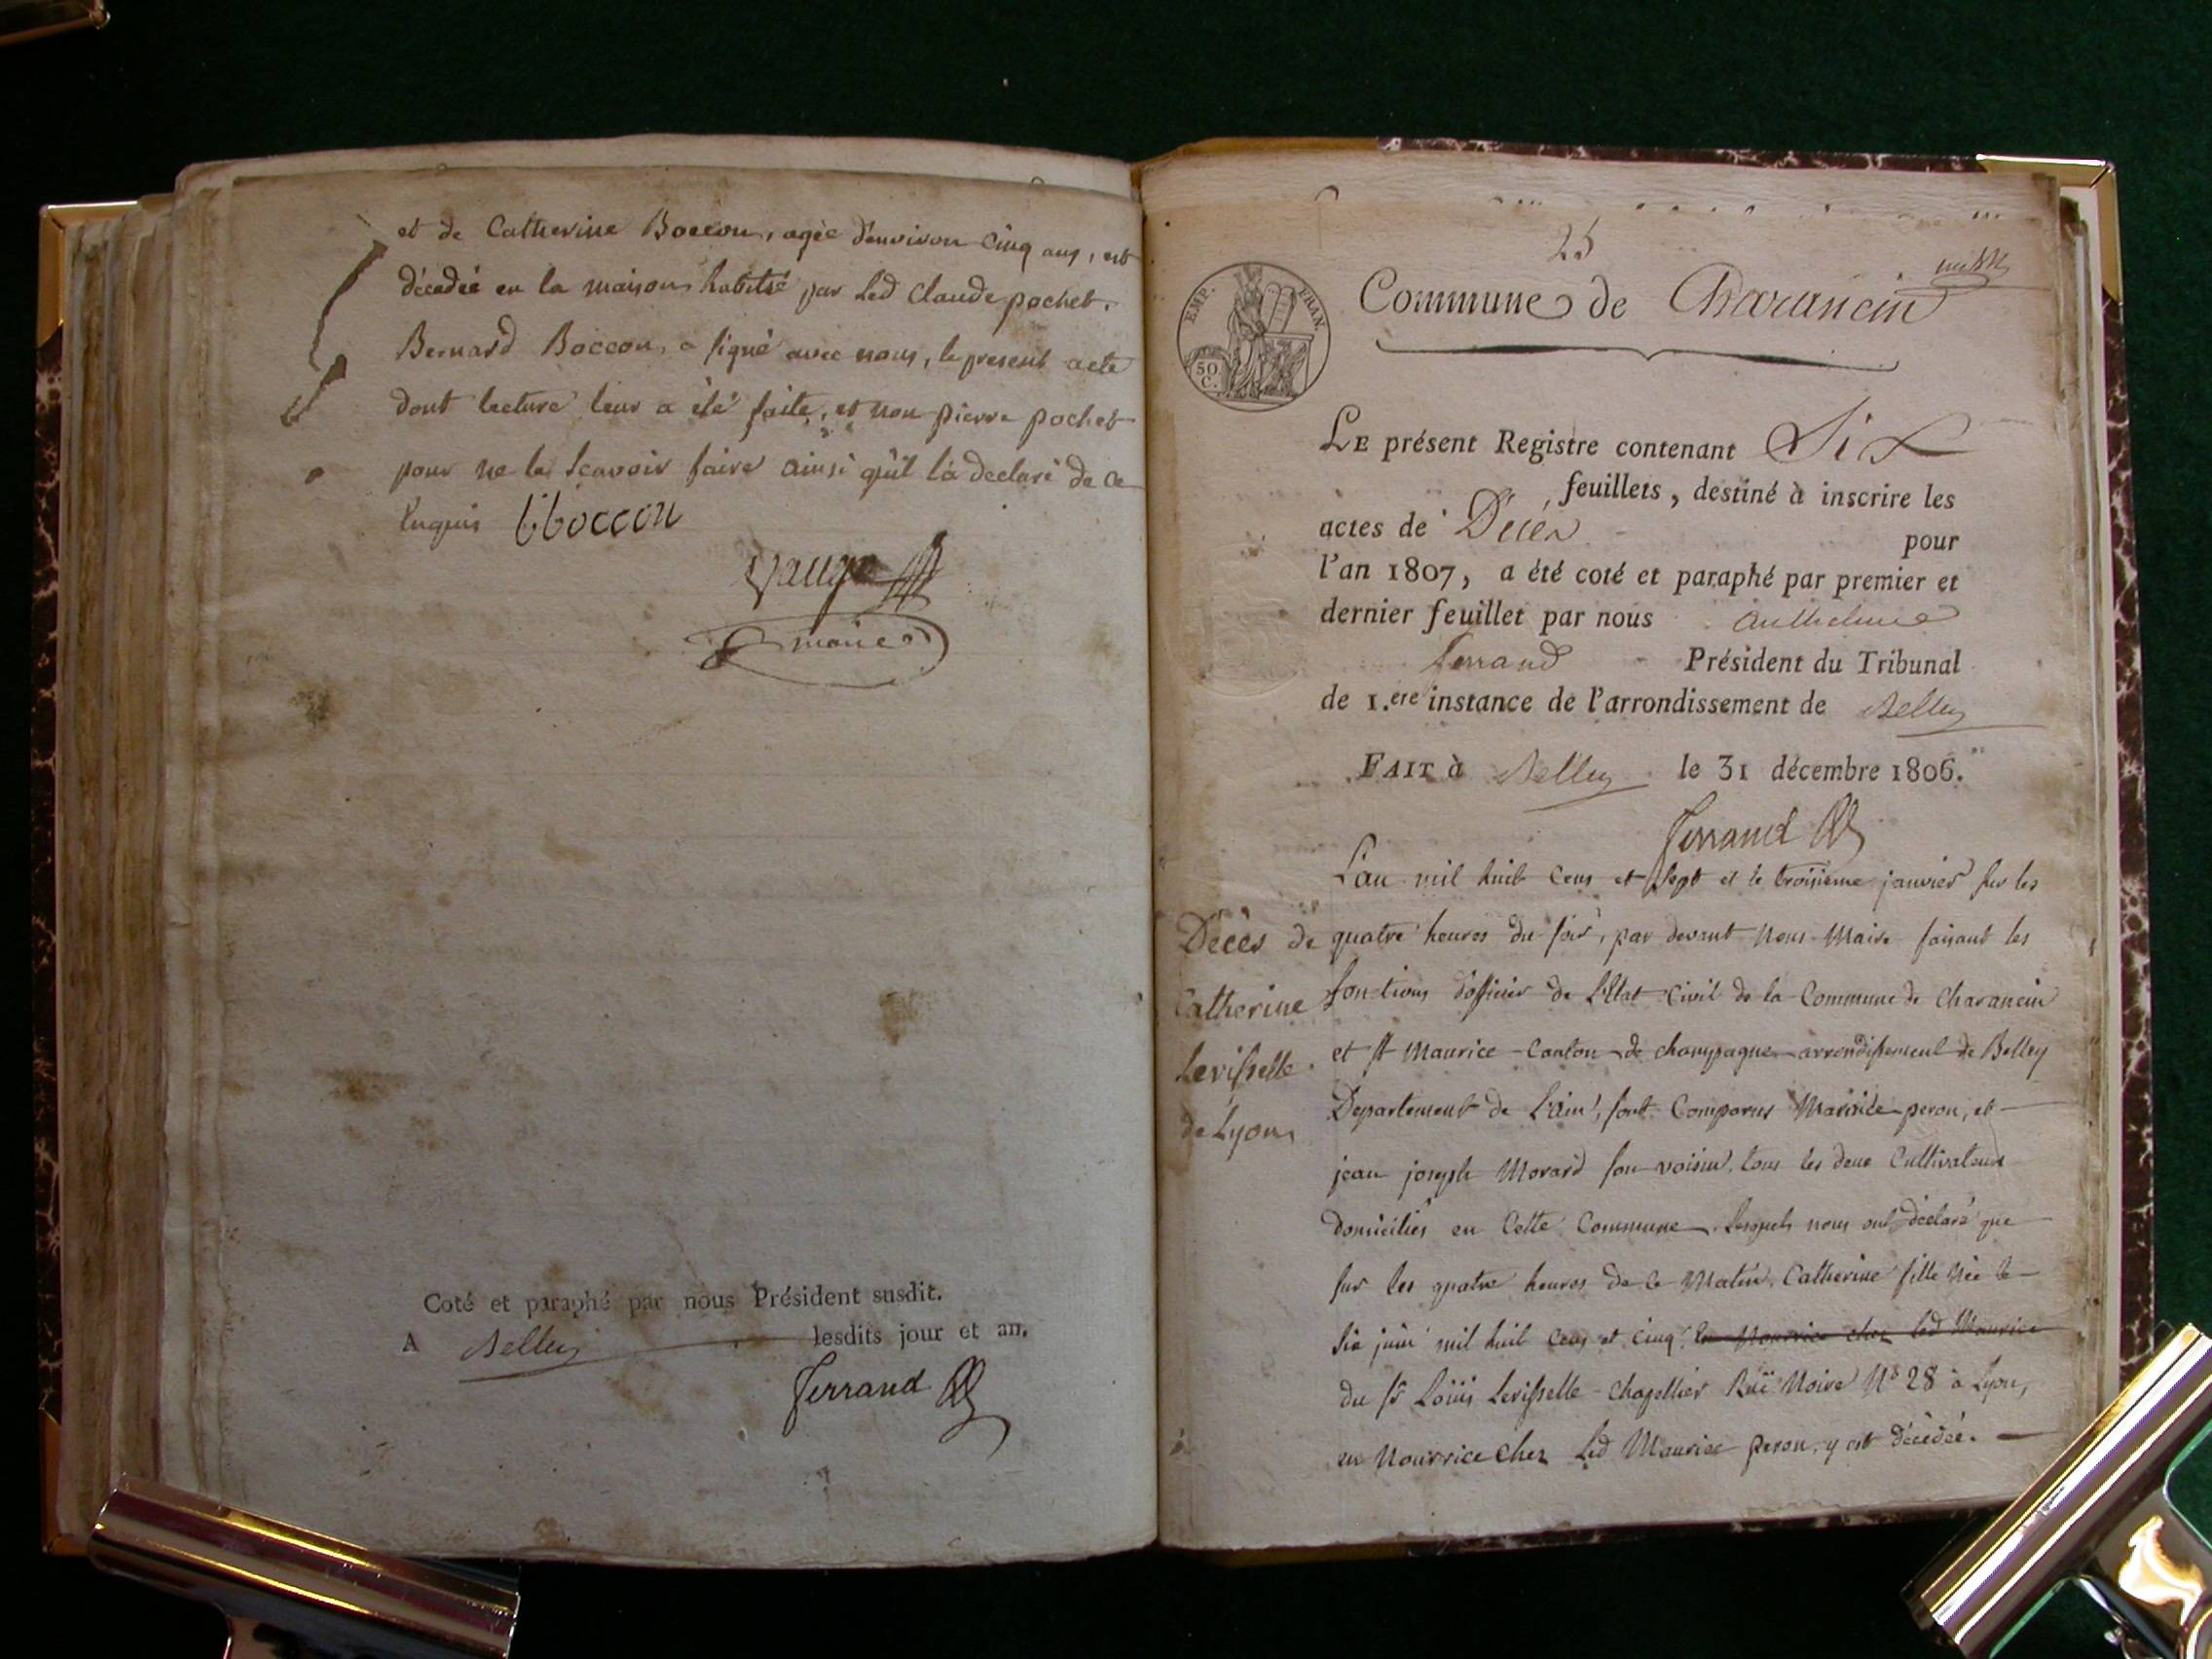 et de Catherine Boccon, agée d'environ Cinq ans, est
décédée en la maison habitée par Led Claude pochet.
Bernard Boccon, a signé avec nous, le present acte
dont lecture leur a été faite, et non pierre pochet
pour ne le Scavoir faire ainsi qu'il l'a declaré de ce
Enquis Bboccon
maire
Coté et paraphé par nous Président susdit.
A Belley lesdits jour et an.
Ferrand
25
EMP. FRAN.
50 C.
Commune de Charancin
LE présent Registre contenant Six
feuillets, destiné à inscrire les
actes de Décès pour
l'an 1807, a été coté et paraphé par premier et
dernier feuillet par nous Anthelme
ferrand Président du Tribunal
de 1.ere instance de l'arrondissement de Belley
FAIT à Belley le 31 décembre 1806.
Ferrand
Décès de
Catherine
Levisselle
de Lyon
L'an mil huit Cens et sept et le troisieme janvier sur les
quatre heures du soir, par devant Nous Maire faisant les
fonctions d'officier de L'Etat Civil de la Commune de Charancin
et St Maurice Canton de champagne arrondissement de Belley
Departement de L'ain, sont Comparus Maurice peron, et
jean joseph Morard son voisin, tous les deux Cultivateurs
domiciliés en Cette Commune. Lesquels nous ont déclaré que
sur les quatre heures de ce Matin, Catherine fille née le
six juin mil huit Cens et cinq, en Nourrice chez led Maurice
du Sr Loüis Levisselle Chapellier Ruë Noire No 28 à Lyon,
en Nourrice chez Led Maurice peron, y est décédée.